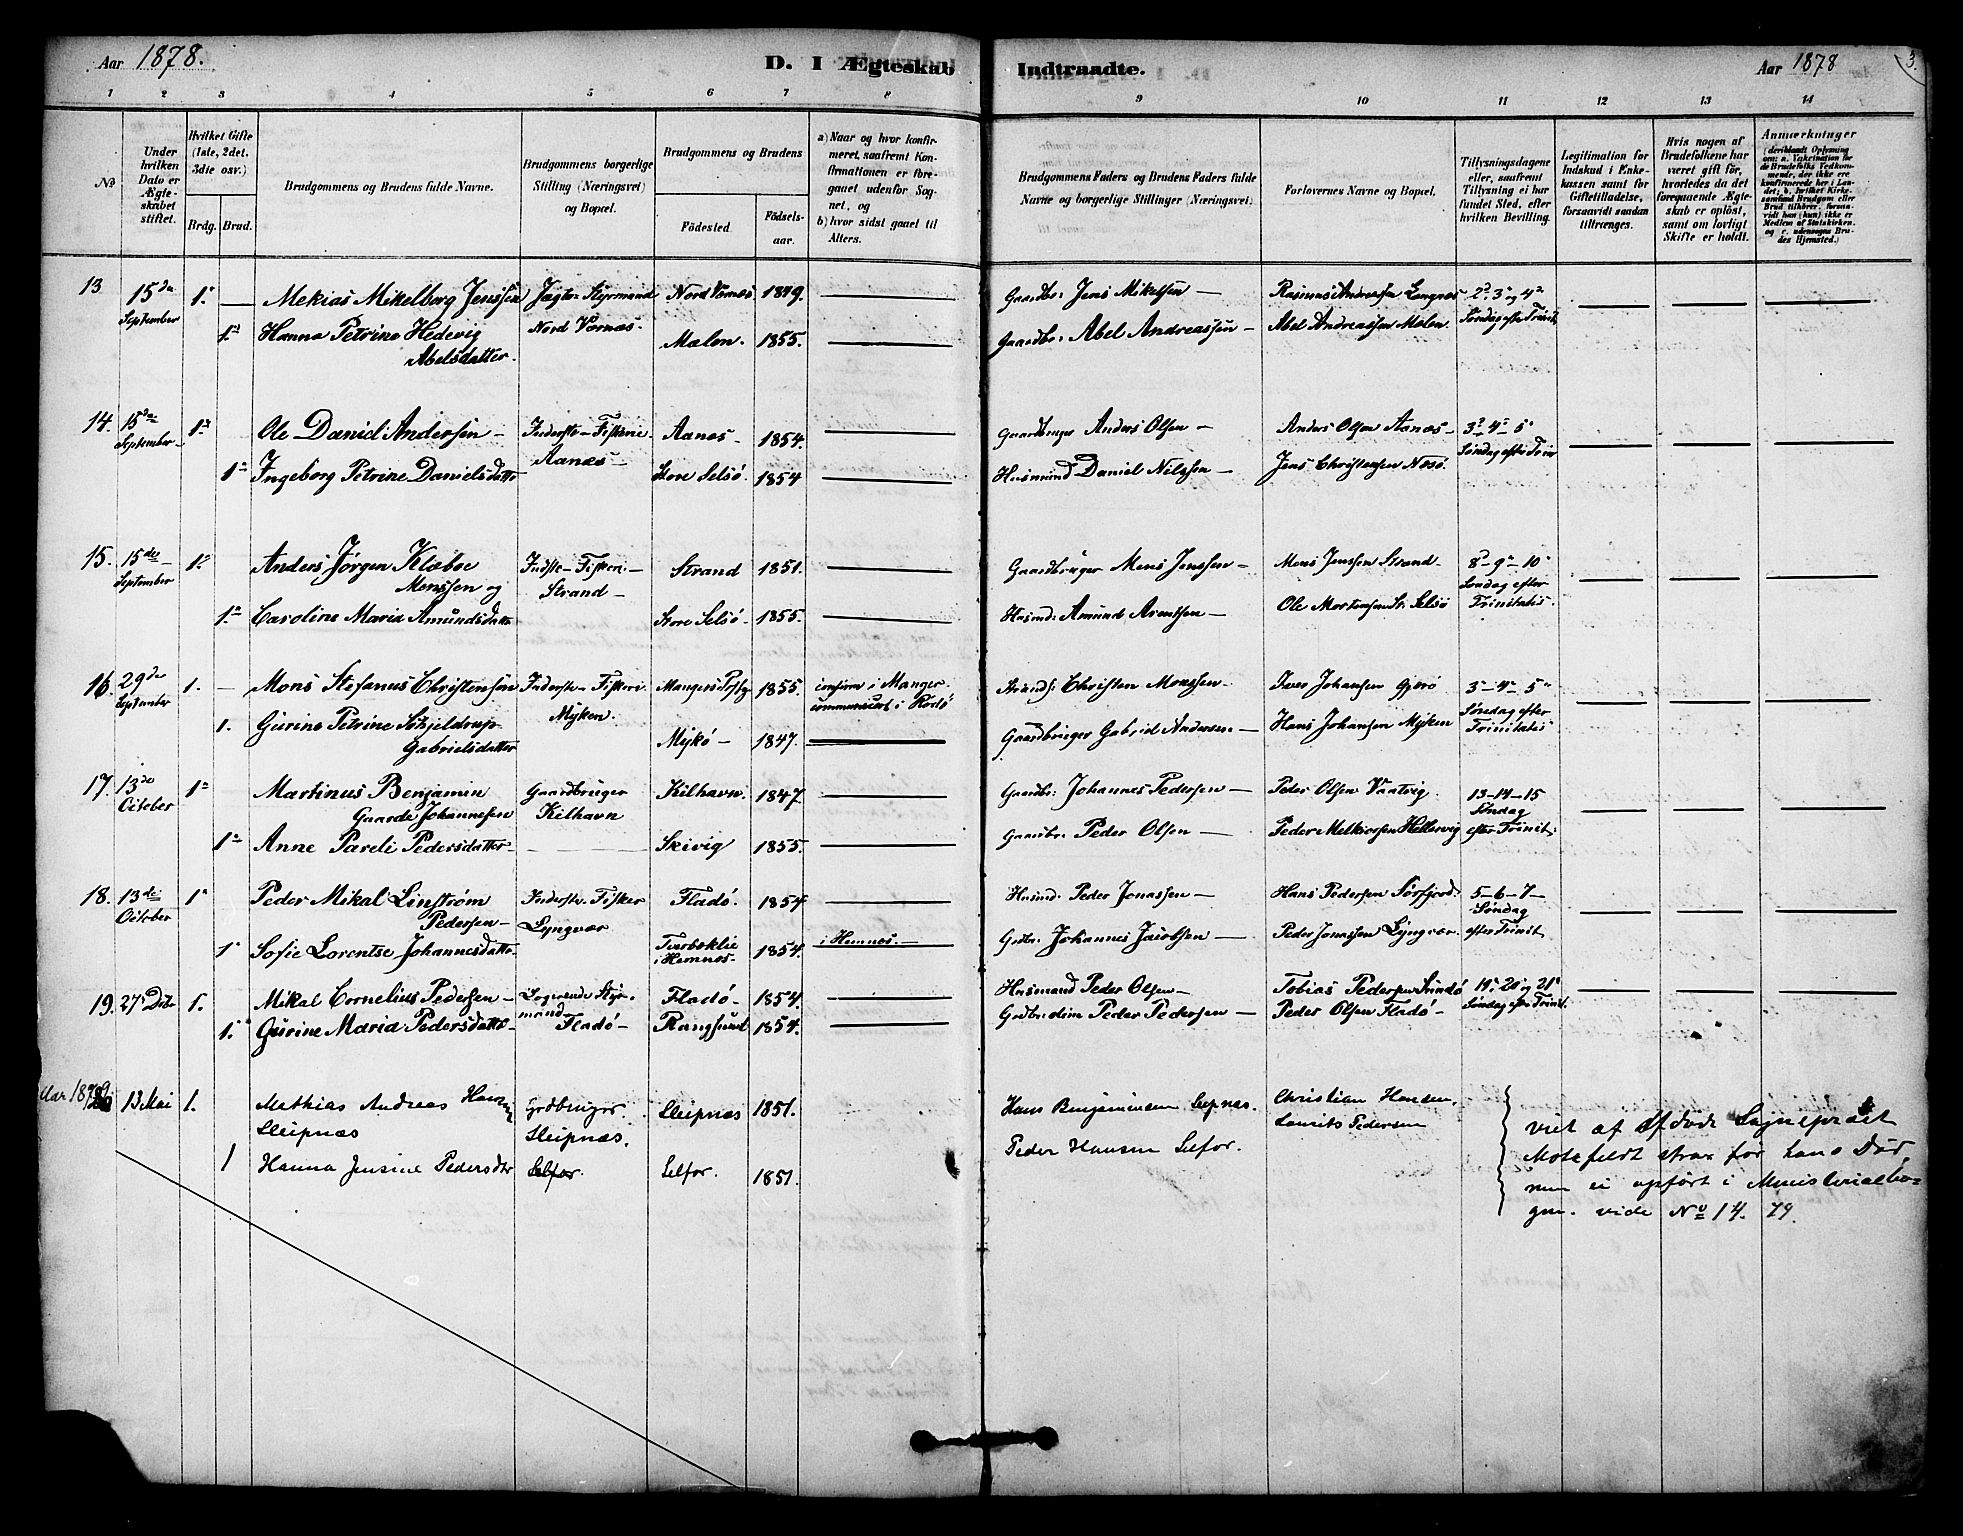 Aar 1878.
D. I Ægteskab Indtraadte.
Aar 1878
3.
1 2 3 4 5 6 7 8 9 10 11 12 13 14
No
Under hvilken Dato er Ægteskabet stiftet.
Hvilket Gifte (1ste, 2det. 3die osv.)
Brdg. Brud.
Brudgommens og Brudens fulde Navne.
Brudgommens borgerlige Stilling (Næringsvei) og Bopæl.
Brudgommens og Brudens
Fødested.
Fødselsaar.
a) Naar og hvor konfirmeret, saafremt Konfirmationen er foregaaet udenfor Sognet, og
b) hvor sidst gaaet til Alters.
Brudgommens Faders og Brudens Faders fulde Navne og borgerlige Stillinger (Næringsvei)
Forlovernes Navne og Bopæl.
Tillysningsdagene eller, saafremt Tillysning ei har fundet Sted, efter hvilken Bevilling.
Legitimation for Indskud i Enkekassen samt for Giftetilladelse, forsaavidt saadan tiltrænges.
Hvis nogen af Brudefolkene har været gift før, hvorledes da det foregaaende Ægteskab er opløst, samt om lovligt Skifte er holdt.
Anmærkninger (deriblandt Oplysning om: a. Vakcination for de Brudefolks Vedkommende, der ikke ere konfirmerede her i Landet; b. hvilket Kirkesamfund Brudgom eller Brud tilhører, forsaavidt han (hun) ikke er Medlem af Statskirken, og c. udensogns Brudes Hjemsted.)
13 15de September 1. Mekias Mikelborg Jenssen Jægte-Styrmand Nord Vernæs 1849. Gaardbr: Jens Mikelsen Rasmus Andreassen Langnes 2d, 3o og 4de
1. Hanna Petrine Hedevig Abelsdatter. Nord Værnæs. Mælen. 1855. Gaardbr: Abel Andreassen Abel Andreassen Mælen. Søndag efter Trinit.
14. 15de September 1. Ole Daniel Andersen Inderste - Fiskeri Aanæs 1854. Gaardbruger Anders Olsen Anders Olsen Aanæs 3-4-5
1 Ingeborg Petrine Danielsdatter Aanæs Store Selsø. 1854 Husmand Daniel Nilssen Jens Christensen Næsø. Søndag efter Trin
15. 15de September 1. Anders Jørgen Klæboe Monssen og Indste - Fiskeri Strand Strand 1851. Gaardbruger Mons Jenssen Mons Jenssen Strand 8-9-10
1. Caroline Maria Amundsdatter Store Selsø 1855. Husmd: Amund Arentsen Ole Mortensen St: Selsø Søndag efter Trinitatis.
16. 29de September 1. Mons Stefanus Christensen Inderste - Fiskeri Mangers Prstg 1855. confirm i Manger communicert i Rødø Strands: Christen Monssen Iver Johansen Gjerø 3-4-5
1. Gurine Petrine Schjeldrup Gabrielsdatter Myken. Mykø 1847. Gaardbruger Gabriel Andersen Hans Johansen Myken Søndag efter Trinitatis
17. 13de October 1 Martinus Benjamin Gaarde Johannesen Gaardbruger Kilhavn Kilhavn. 1847. Gaardbr: Johannes Pedersen Peder Olsen Vaatvig. 13-14-15 Søndag
1 Anne Pareli Pedersdatter Skivig 1855. Gaardbr: Peder Olsen Peder Melkiorsen Hellervig efter Trinit.
18. 13de October 1 Peder Mikal Linstrøm Pedersen Inderste. Fisker Lyngvær Fladø. 1854. Husmd. Peder Jonassen Hans Pedersen Sørfjord. 5-6-7 Søndag
1 Sofie Lorentse Johannesdatter Tverbæklie i Hemnæs. 1854. i Hemnæs. Grdbr. Johannes Jacobsen Peder Jonassen Lyngvær. efter Trinit.
19. 27 Octbr 1. Mikal Cornelius Pedersen Logerende Styrmand Fladø Fladø 1854. Husmand Peder Olsen Tobias Pedersen Svindø 19. 20 og 21
1. Gurine Maria Pedersdatter Rangsund 1854. Grdbr: Peder Pedersen Peder Olsen Fladø Søndag efter Trinit.
Aar 1879
13 Mai 1. Mathias Andreas Hansen Sleipnæs Grdbruger Sleipnæs. Sleipnæs 1851. Hans Benjaminsen Sleipnæs. Christian Hansen.
1 Hanna Jensine Pedersdtr Selfor. Selfor. 1851. Peder Hansen Selfor. Laurits Pedersen
viet af afdøde Sognepræst
Motzfeldt strax før hans Død
men ei opført i Ministerialbo-
gen. vide No 14. 79.